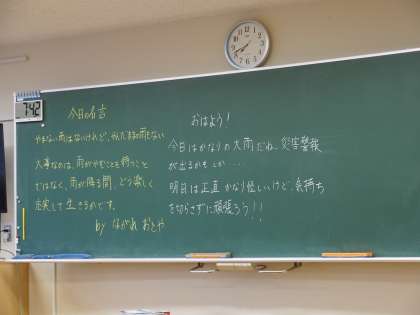 7:42
今日の名言
やまない雨はないけれど、やんだままの雨もない
大事なのは、雨がやむことを待つこと
ではなく、雨が降る間、どう楽しく
充実して生きるかです。
by ながれ おとや
おはよう!
今日はかなりの大雨だね、災害警報
が出るかもしか・・・・
明日は正直かなり怪しいけど、気持ち
を切らさずに頑張ろう!!